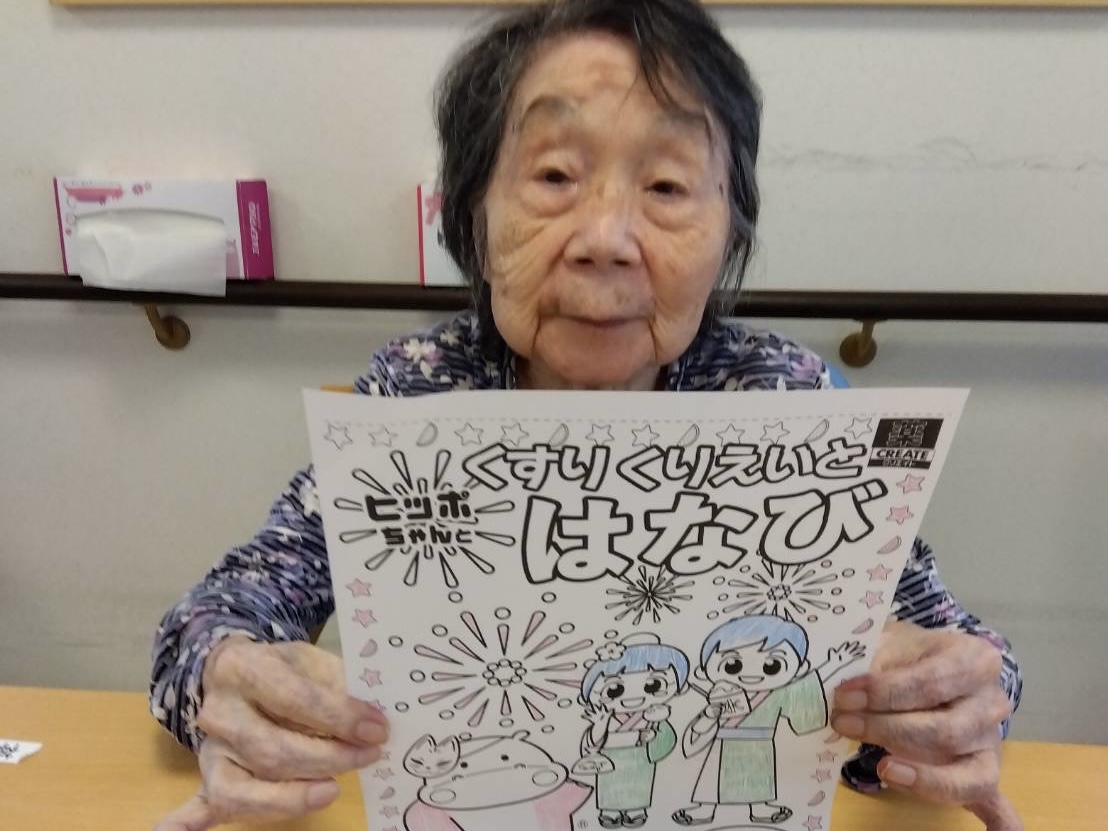 くすりくりえいと
ヒッポ
ちゃんと
はなび
CREATE
クリエイト
氷